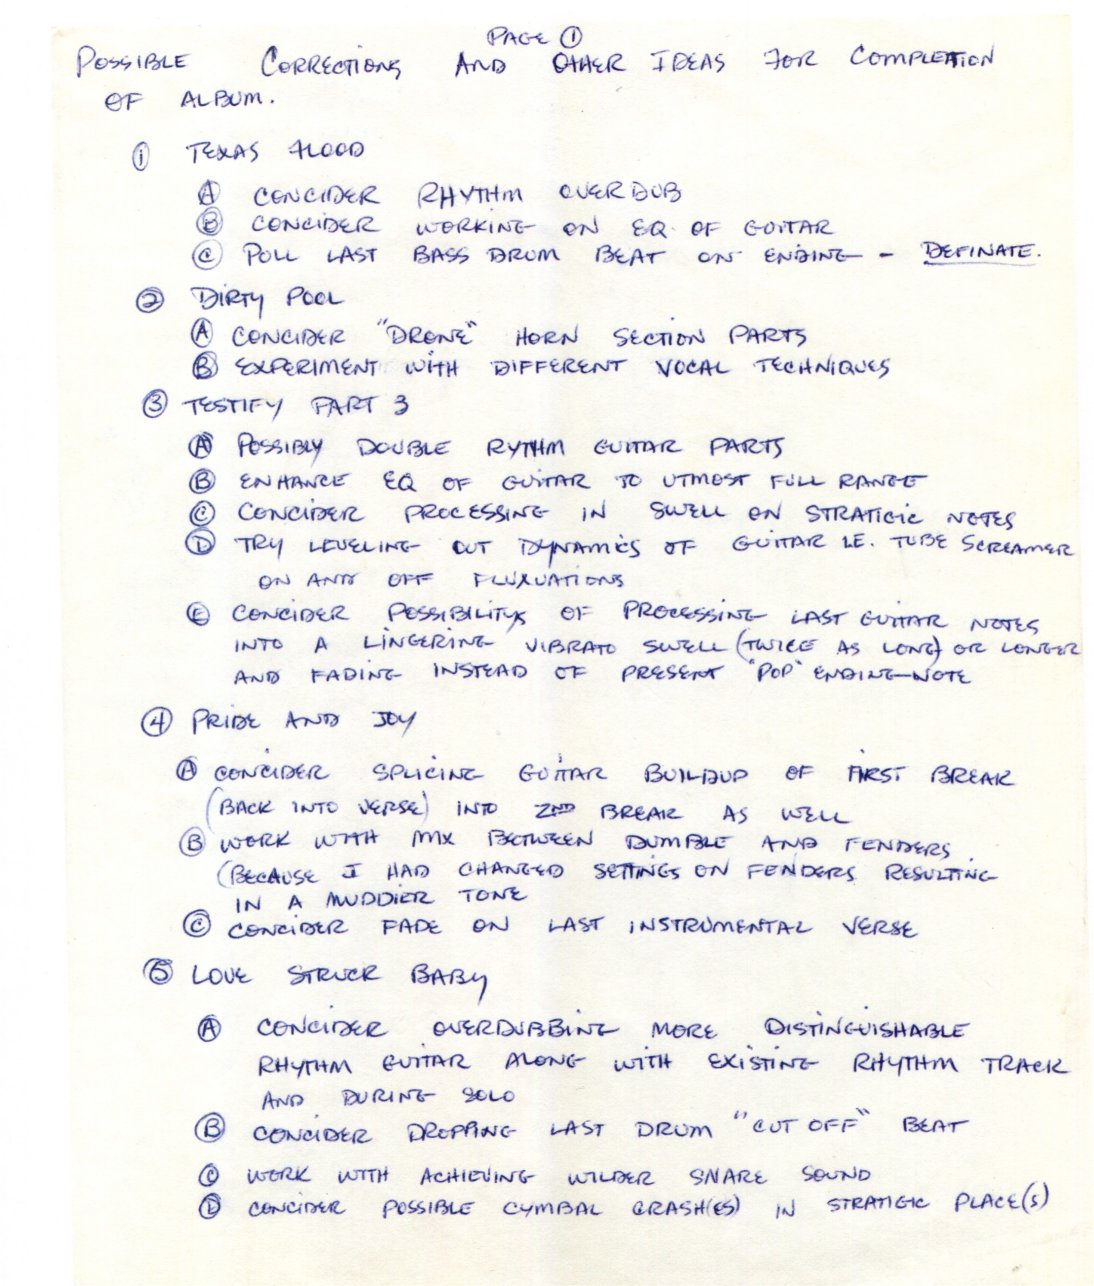 PAGE ①
POSSIBLE CORRECTIONS AND OTHER IDEAS FOR COMPLETION
OF ALBUM.
① TEXAS FLOOD
Ⓐ CONCIDER RHYTHM OVERDUB
Ⓑ CONCIDER WORKING ON EQ. OF GUITAR
Ⓒ PULL LAST BASS DRUM BEAT ON ENDING - DEFINATE.
② DIRTY POOL
Ⓐ CONCIDER "DRONE" HORN SECTION PARTS
Ⓑ EXPERIMENT WITH DIFFERENT VOCAL TECHNIQUES
③ TESTIFY PART 3
Ⓐ POSSIBLY DOUBLE RYTHM GUITAR PARTS
Ⓑ ENHANCE EQ OF GUITAR TO UTMOST FULL RANGE
Ⓒ CONCIDER PROCESSING IN SWELL ON STRATIGIC NOTES
Ⓓ TRY LEVELING OUT DYNAMICS OF GUITAR I.E. TUBE SCREAMER
ON AND OFF FLUXUATIONS
Ⓔ CONCIDER POSSIBILITYS OF PROCESSING LAST GUITAR NOTES
INTO A LINGERING VIBRATO SWELL (TWICE AS LONG) OR LONGER
AND FADING INSTEAD OF PRESENT "POP" ENDING—NOTE
④ PRIDE AND JOY
Ⓐ CONCIDER SPLICING GUITAR BUILDUP OF FIRST BREAK
(BACK INTO VERSE) INTO 2ND BREAK AS WELL
Ⓑ WORK WITH MIX BETWEEN DUMBLE AND FENDERS
(BECAUSE I HAD CHANGED SETTINGS ON FENDERS RESULTING
IN A MUDDIER TONE
Ⓒ CONCIDER FADE ON LAST INSTRUMENTAL VERSE
⑤ LOVE STRUCK BABY
Ⓐ CONCIDER OVERDUBBING MORE DISTINGUISHABLE
RHYTHM GUITAR ALONG WITH EXISTING RHYTHM TRACK
AND DURING SOLO
Ⓑ CONCIDER DROPPING LAST DRUM "CUT OFF" BEAT
Ⓒ WORK WITH ACHIEVING WILDER SNARE SOUND
Ⓓ CONCIDER POSSIBLE CYMBAL CRASH(ES) IN STRATIGIC PLACE(S)